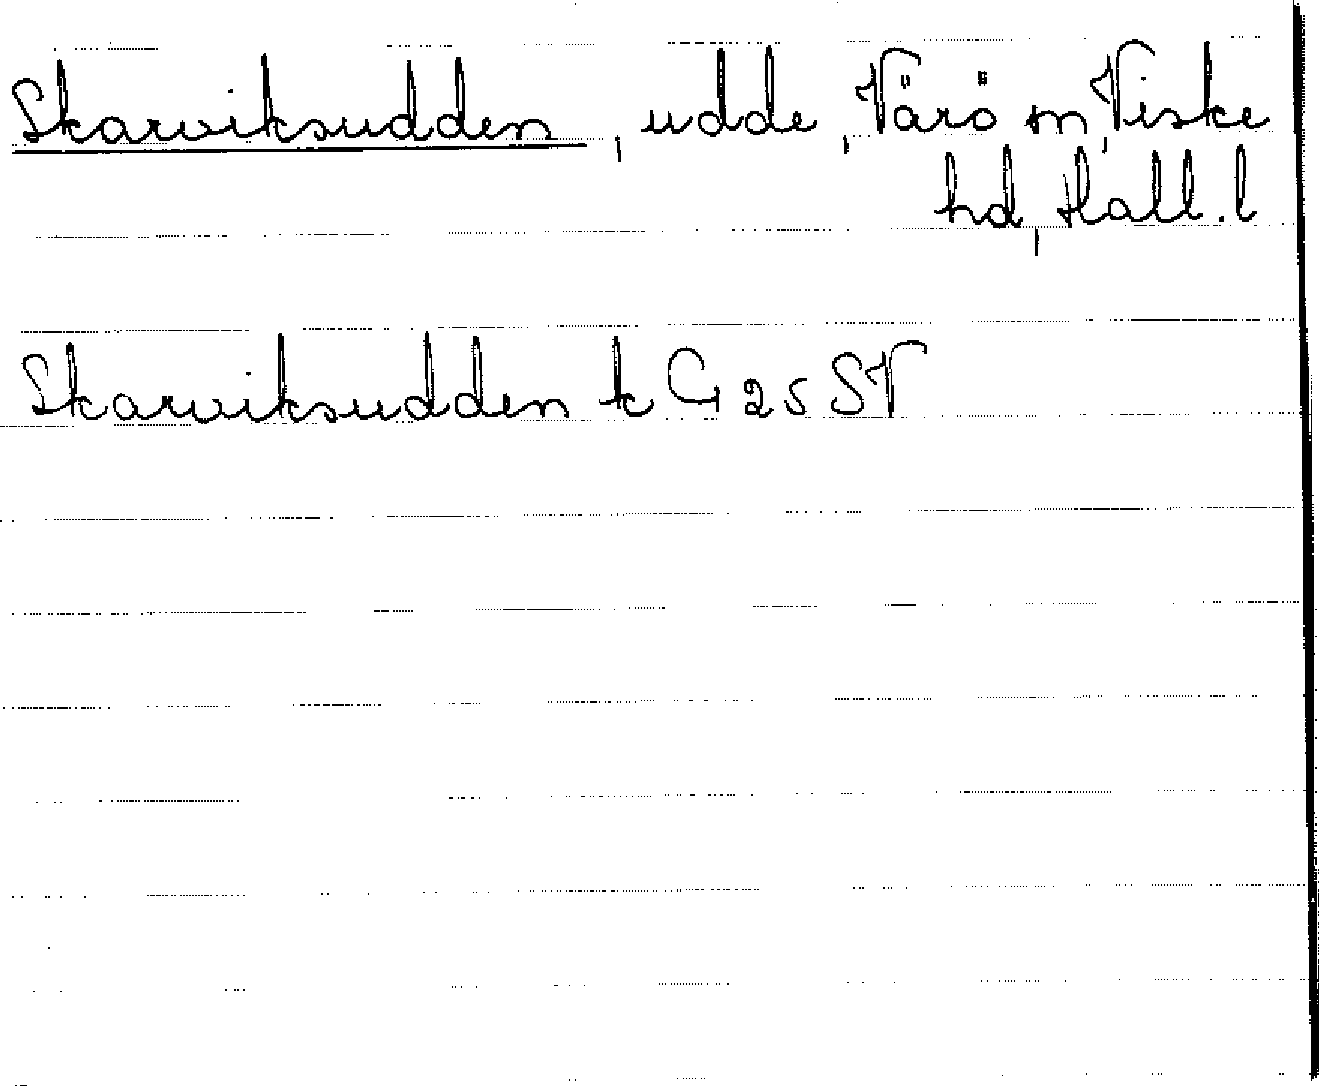 Skarviksudden, udde, Värö sn, Viske
hd, Hall. l
Skarviksudden k G 25 SV